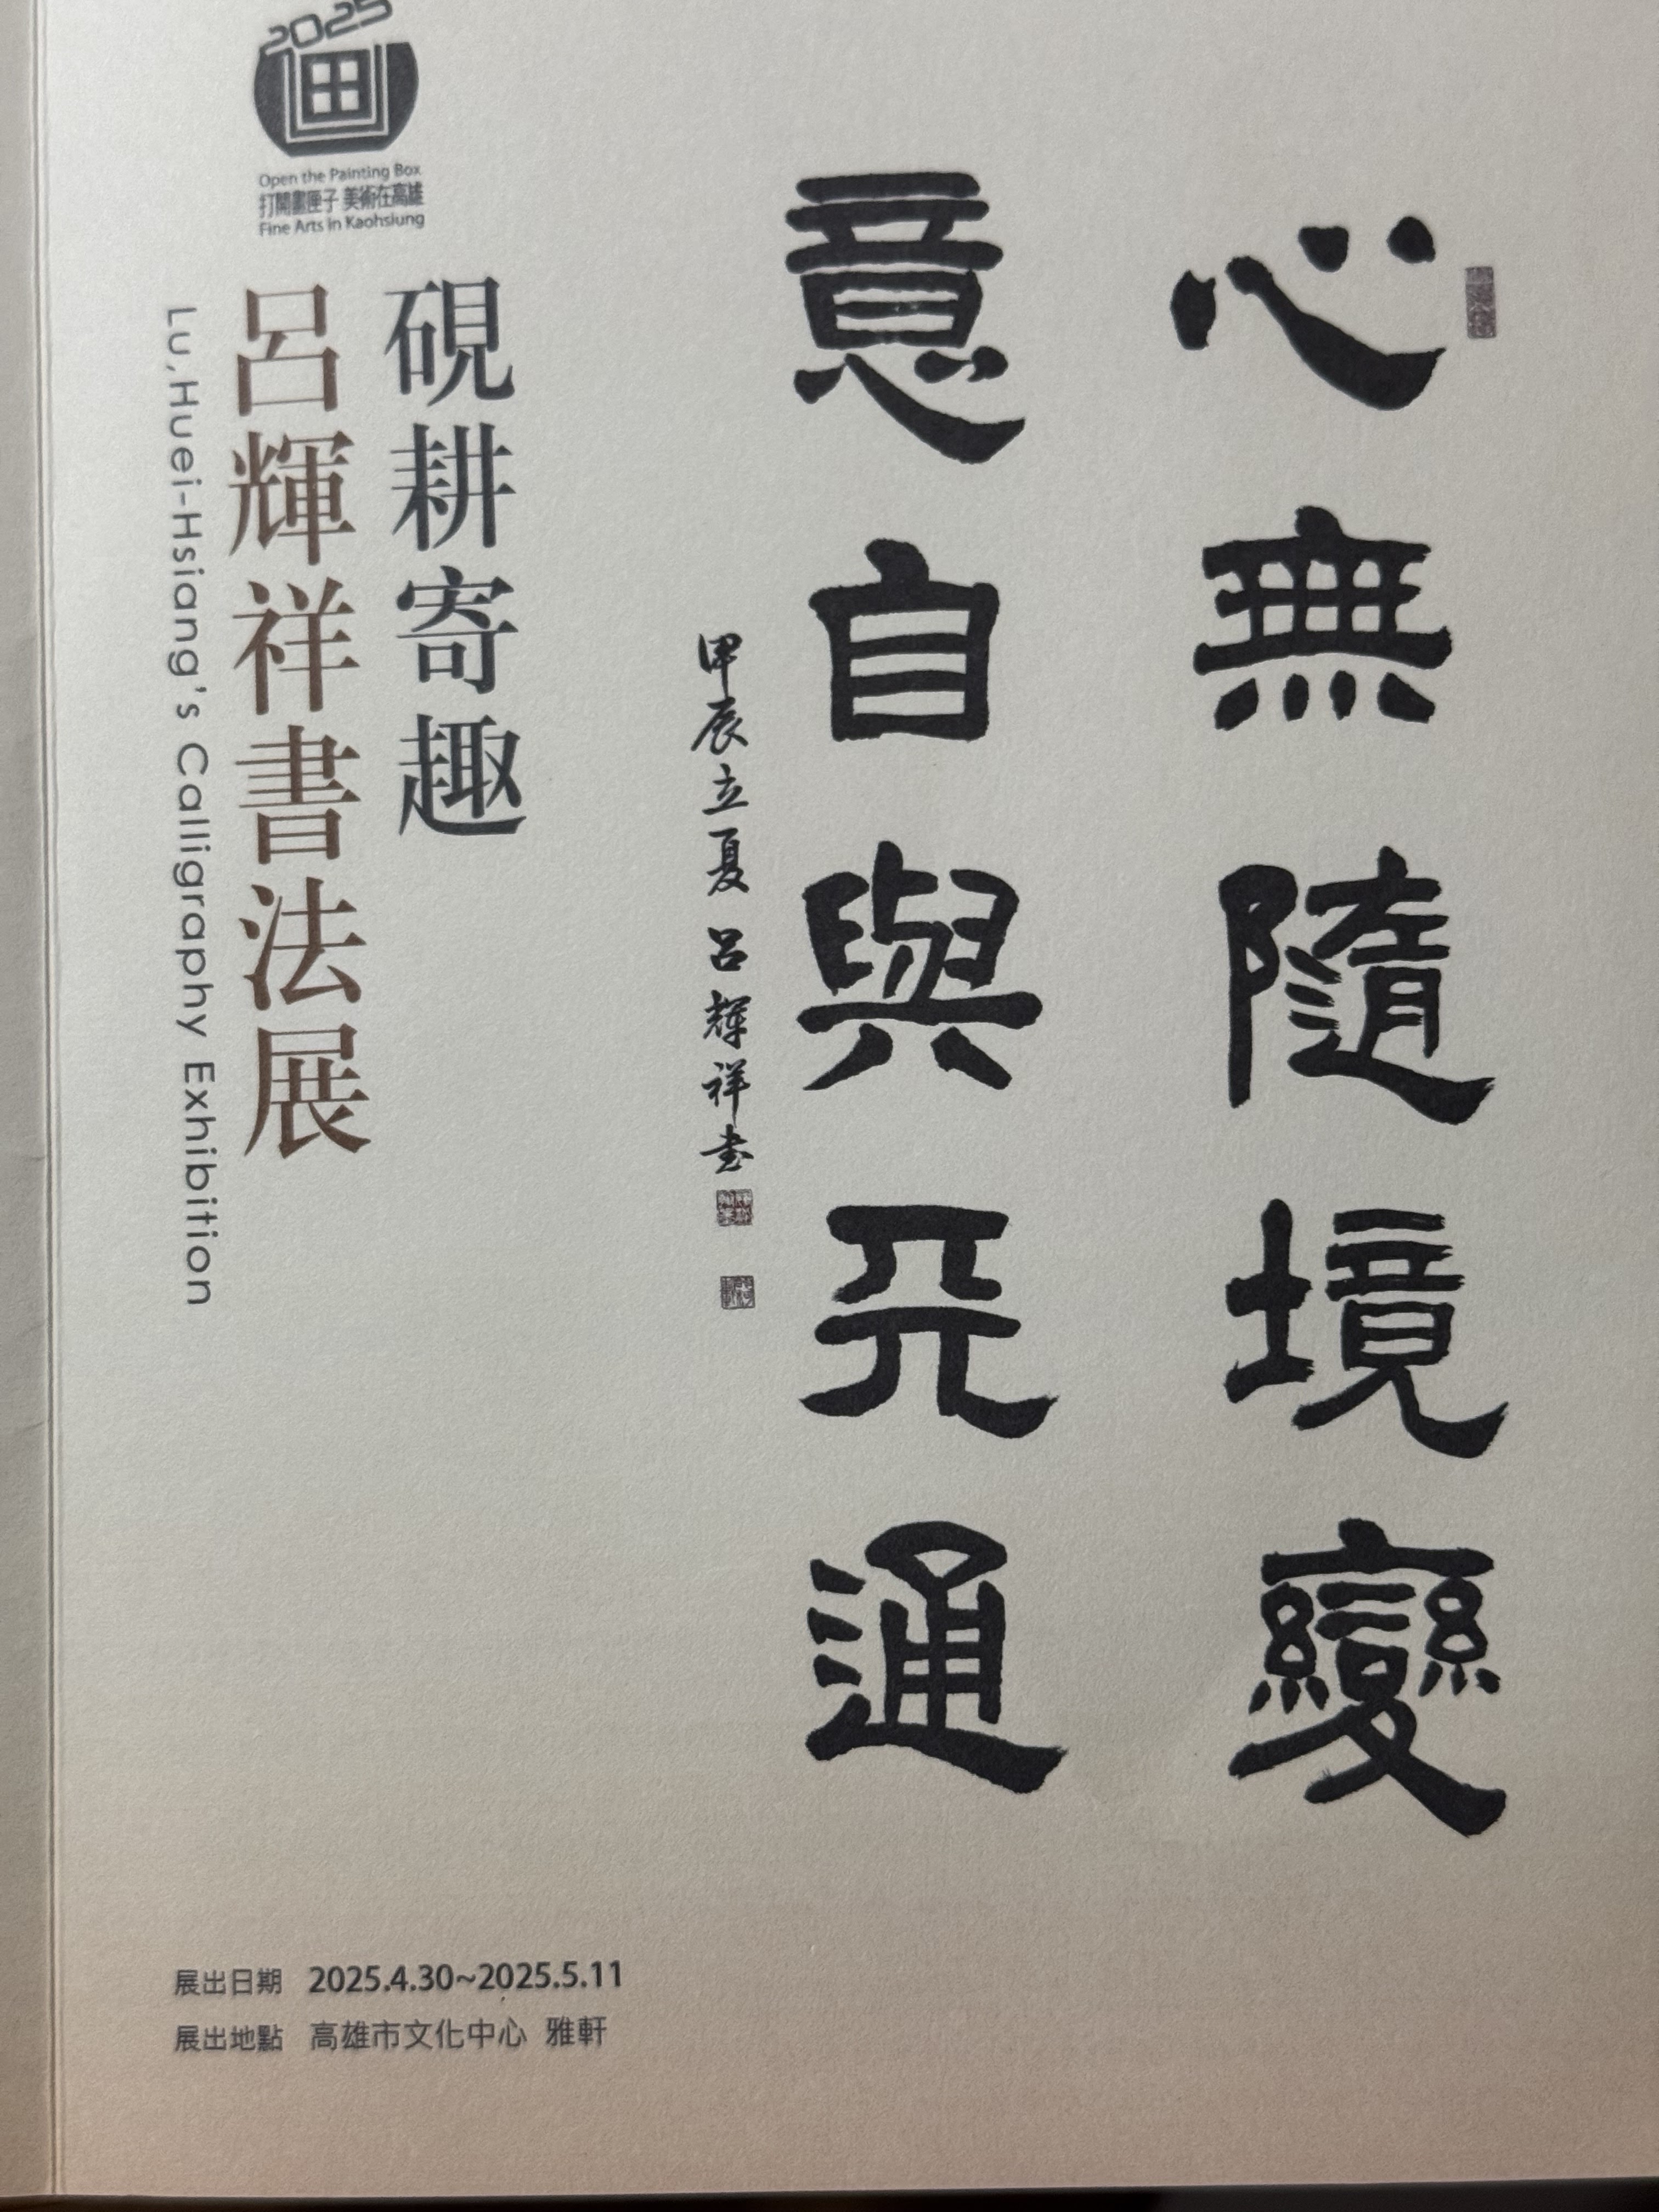 2025
画
Open the Painting Box
打開畫匣子 美術在高雄
Fine Arts in Kaohsiung
心無隨境變
意自與天通
甲辰立夏 呂輝祥書
硯耕寄趣
呂輝祥書法展
Lu,Huei-Hsiang's Calligraphy Exhibition
展出日期 2025.4.30~2025.5.11
展出地點 高雄市文化中心 雅軒